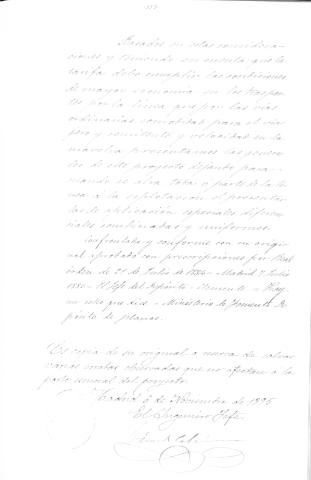 Basados en estas considera-
ciones y teniendo en cuenta que la
tarifa debe cumplir las condiciones
de mayor economía en los traspor-
tes por la línea que por las vías
ordinarias, comodidad para el viaje-
ro y remitente y velocidad en la
marcha presentamos las genera-
les de este proyecto dejando para
cuando se abra toda o parte de la lí-
nea a la explotación el presentar
las de aplicación especiales diferen-
ciales combinadas y uniformes.
Confrontado y conforme con su origi-
nal aprobado con prescripciones por Real
órden de 21 de Julio de 1886 - Madrid 7 Julio
El Jefe del Depósito - Hay
un sello que dice - Ministerio de Fomento De-
pósito de planos.
Es copia de su original a reserva de salvar
varias erratas observadas que no afectan a la
parte esencial del proyecto.
Madrid 6 de Noviembre de 1895
El Ingeniero Jefe